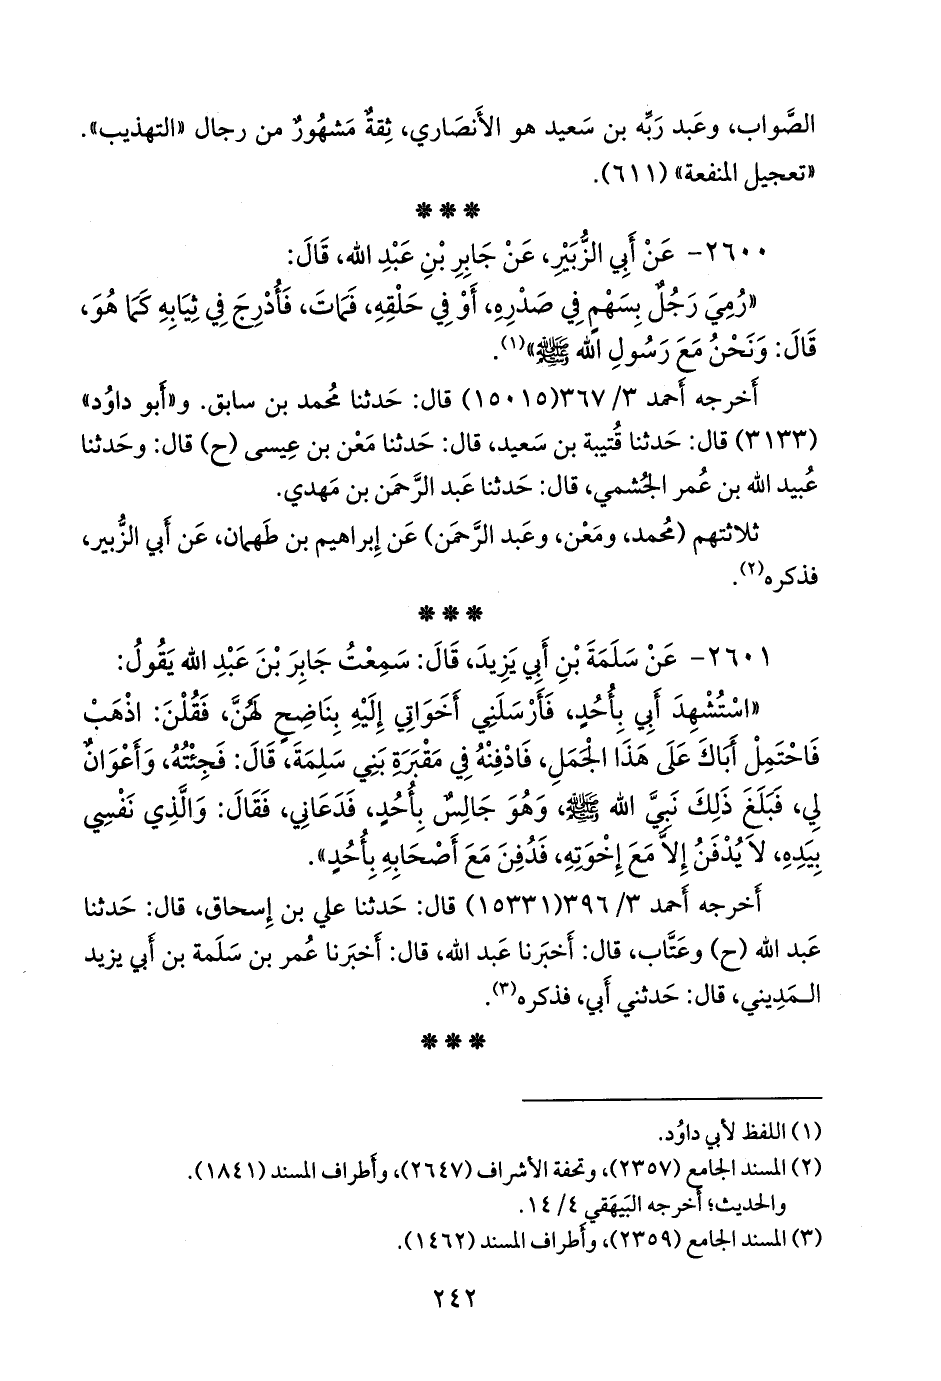 الصَّواب، وعَبد رَبِّه بن سَعيد هو الأَنصَاري، ثِقةٌ مَشهُورٌ من رجال «التهذيب».
«تعجيل المنفعة» (٦١١).
***
٢٦٠٠- عَنْ أَبِي الزُّبَيْرِ، عَنْ جَابِرِ بْنِ عَبْدِ الله، قَالَ:
«رُمِيَ رَجُلٌ بِسَهْمٍ فِي صَدْرِهِ، أَوْ فِي حَلْقِهِ، فَمَاتَ، فَأُدْرِجَ فِي ثِيَابِهِ كَمَا هُوَ،
قَالَ: وَنَحْنُ مَعَ رَسُولِ الله ﷺ»(١).
أَخرجه أَحمد ٣/ ٣٦٧(١٥٠١٥) قال: حَدثنا مُحمد بن سابق. و«أَبو داوُد»
(٣١٣٣) قال: حَدثنا قُتيبة بن سَعيد، قال: حَدثنا مَعْن بن عِيسى (ح) قال: وحَدثنا
عُبيد الله بن عُمر الجُشمي، قال: حَدثنا عَبد الرَّحمَن بن مَهدي.
ثلاثتهم (مُحمد، ومَعْن، وعَبد الرَّحمَن) عَن إِبراهيم بن طَهمان، عَن أَبي الزُّبير،
فذكره(٢).
***
٢٦٠١- عَنْ سَلَمَةَ بْنِ أَبِي يَزِيدَ، قَالَ: سَمِعْتُ جَابِرَ بْنَ عَبْدِ الله يَقُولُ:
«اسْتُشْهِدَ أَبِي بِأُحُدٍ، فَأَرْسَلَنِي أَخَوَاتِي إِلَيْهِ بِنَاضِحٍ لَهُنَّ، فَقُلْنَ: اذْهَبْ
فَاحْتَمِلْ أَبَاكَ عَلَى هَذَا الْجَمَلِ، فَادْفِنْهُ فِي مَقْبَرَةِ بَنِي سَلِمَةَ، قَالَ: فَجِئْتُهُ، وَأَعْوَانٌ
لِي، فَبَلَغَ ذَلِكَ نَبِيَّ الله ﷺ، وَهُوَ جَالِسٌ بِأُحُدٍ، فَدَعَانِي، فَقَالَ: وَالَّذِي نَفْسِي
بِيَدِهِ، لاَ يُدْفَنُ إِلاَّ مَعَ إِخْوَتِهِ، فَدُفِنَ مَعَ أَصْحَابِهِ بِأُحُدٍ».
أَخرجه أَحمد ٣/ ٣٩٦(١٥٣٣١) قال: حَدثنا علي بن إِسحاق، قال: حَدثنا
عَبد الله (ح) وعَتَّاب، قال: أَخبَرنا عَبد الله، قال: أَخبَرنا عُمر بن سَلَمة بن أَبي يزيد
الـمَدِيني، قال: حَدثني أَبي، فذكره(٣).
***
(١) اللفظ لأبي داوُد.
(٢) المسند الجامع (٢٣٥٧)، وتحفة الأشراف (٢٦٤٧)، وأَطراف المسند (١٨٤١).
والحديث؛ أَخرجه البَيهَقي ٤/ ١٤.
(٣) المسند الجامع (٢٣٥٩)، وأَطراف المسند (١٤٦٢).
٢٤٢